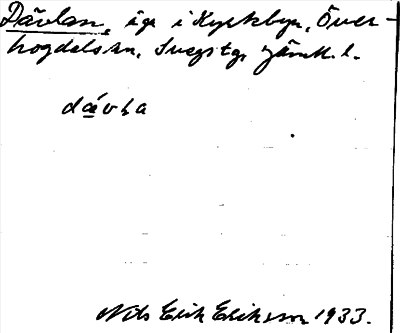 Dävlan, äg i Kyrkbyn, Över-
hogdals sn. Svegs tg. Jämtl. l.
dǽvla
Nils Erik Eriksson 1933.